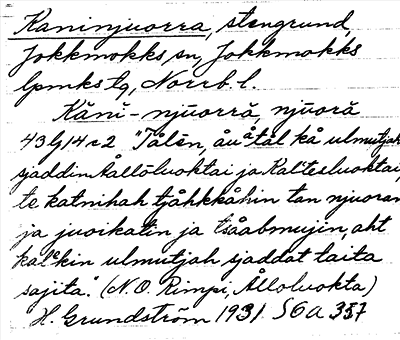 Kaninjuorra, stengrund,
Jokkmokks sn, Jokkmokks
lpmks tg, Norrb. l.
Kăni-njuorră, njuoră
43 lg 14 c 2 "Tălĕn, åuåtăl kå ulmutjah
sjaddin Ållŏluoktai ja Kaltesluoktai,
te katnihah tjåhkkåhin tan njuoran
ja juoikatin ja tsåabmujin, aht
kalkin ulmutjah sjaddat taita
sajita." (N.O. Rimpi, Ålloluokta)
H. Grundström 1931. S 6 a 337